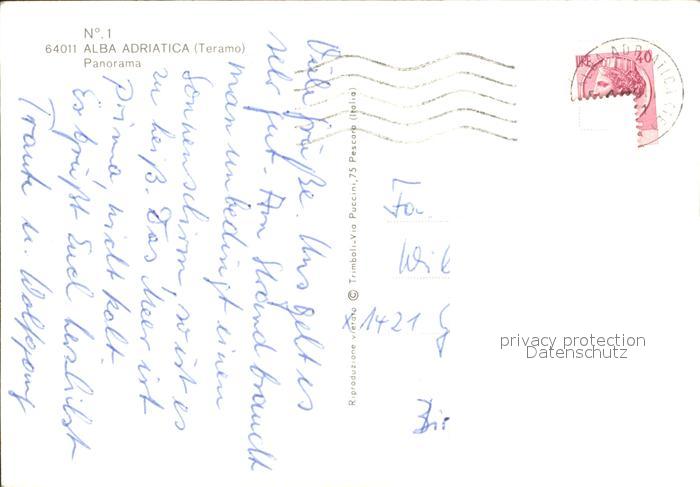 N°. 1
64011 ALBA ADRIATICA (Teramo)
Panorama
Viele Grüße. Uns geht es
sehr gut. Am Strand braucht
man unbedingt einen
Sonnenschirm, so ist es
zu heiß. Das Meer ist
prima, nicht kalt.
Es grüßt Euch herzlichst
Traute u. Wolfgang
Riproduzione vietata © Trimboli-Via Puccini,75 Pescara (Italia)
LIRE 40
ALBA ADRIATICA
Fa.
Wil
X 1421
privacy protection
Datenschutz